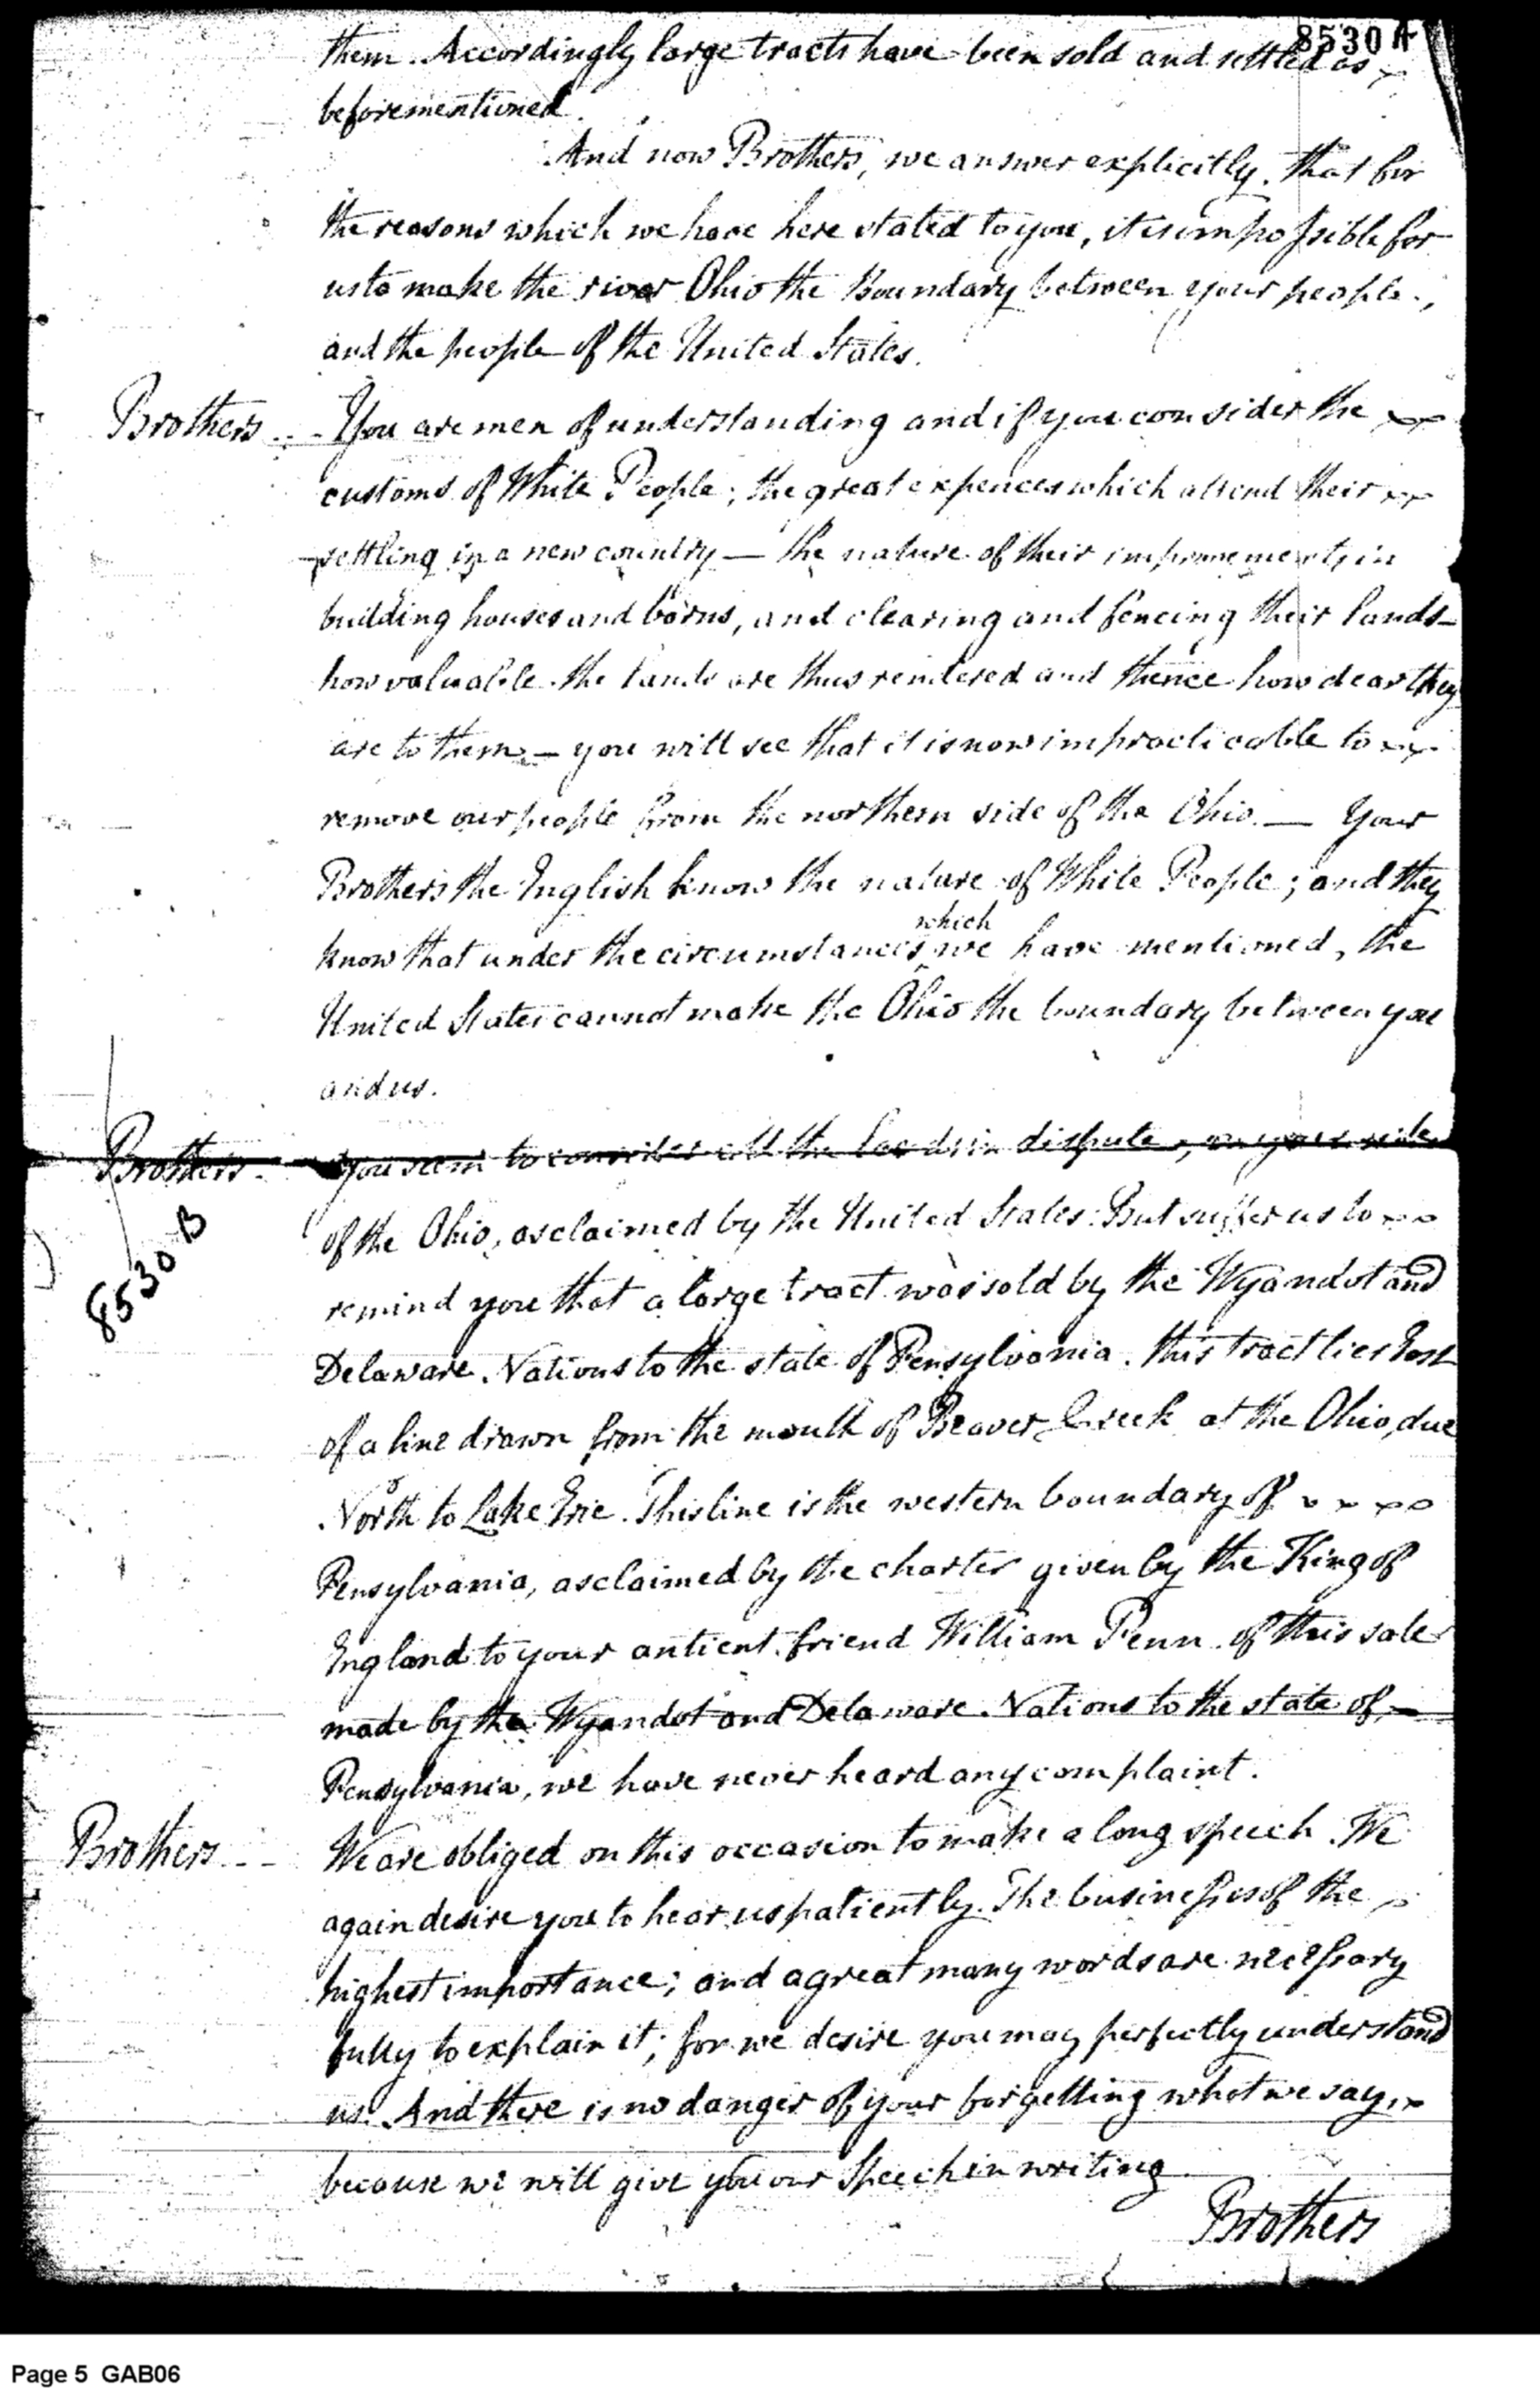 8530 A
them. Accordingly large tracts have been sold and settled as
beforementioned.
And now Brothers, we answer explicitly, that for
the reasons which we have here stated to you, it is impossible for
us to make the river Ohio the Boundary between your people,
and the people of the United States.
Brothers - You are men of understanding and if you consider the
customs of White People; the great expences which attend their
settling in a new country — the nature of their improvements, in
building houses and barns, and clearing and fencing their lands -
how valuable the lands are thus rendered and thence how dear they
are to them — you will see that it is now impracticable to
remove our people from the northern side of the Ohio. — Your
Brothers the English know the nature of White People; and they
which
know that under the circumstances we have mentioned, the
United States cannot make the Ohio the boundary between you
and us.
Brothers. You seem to consider all the lands in dispute, on your side
of the Ohio, as claimed by the United States: But suffer us to
8530 B
remind you that a large tract was sold by the Wyandot and
Delaware Nations to the state of Pensylvania. this tract lies East
of a line drawn from the mouth of Beaver Creek at the Ohio, due
North to Lake Erie. This line is the western boundary of
Pensylvania, as claimed by the charter given by the King of
England to your antient friend William Penn. of this sale
made by the Wyandot and Delaware Nations to the state of
Pensylvania, we have never heard any complaint.
Brothers - We are obliged on this occasion to make a long speech. We
again desire you to hear us patiently. The business is of the
highest importance; and a great many words are necessary
fully to explain it; for we desire you may perfectly understand
us. And there is no danger of your forgetting what we say,
because we will give you our Speech in writing
Brothers
Page 5 GAB06